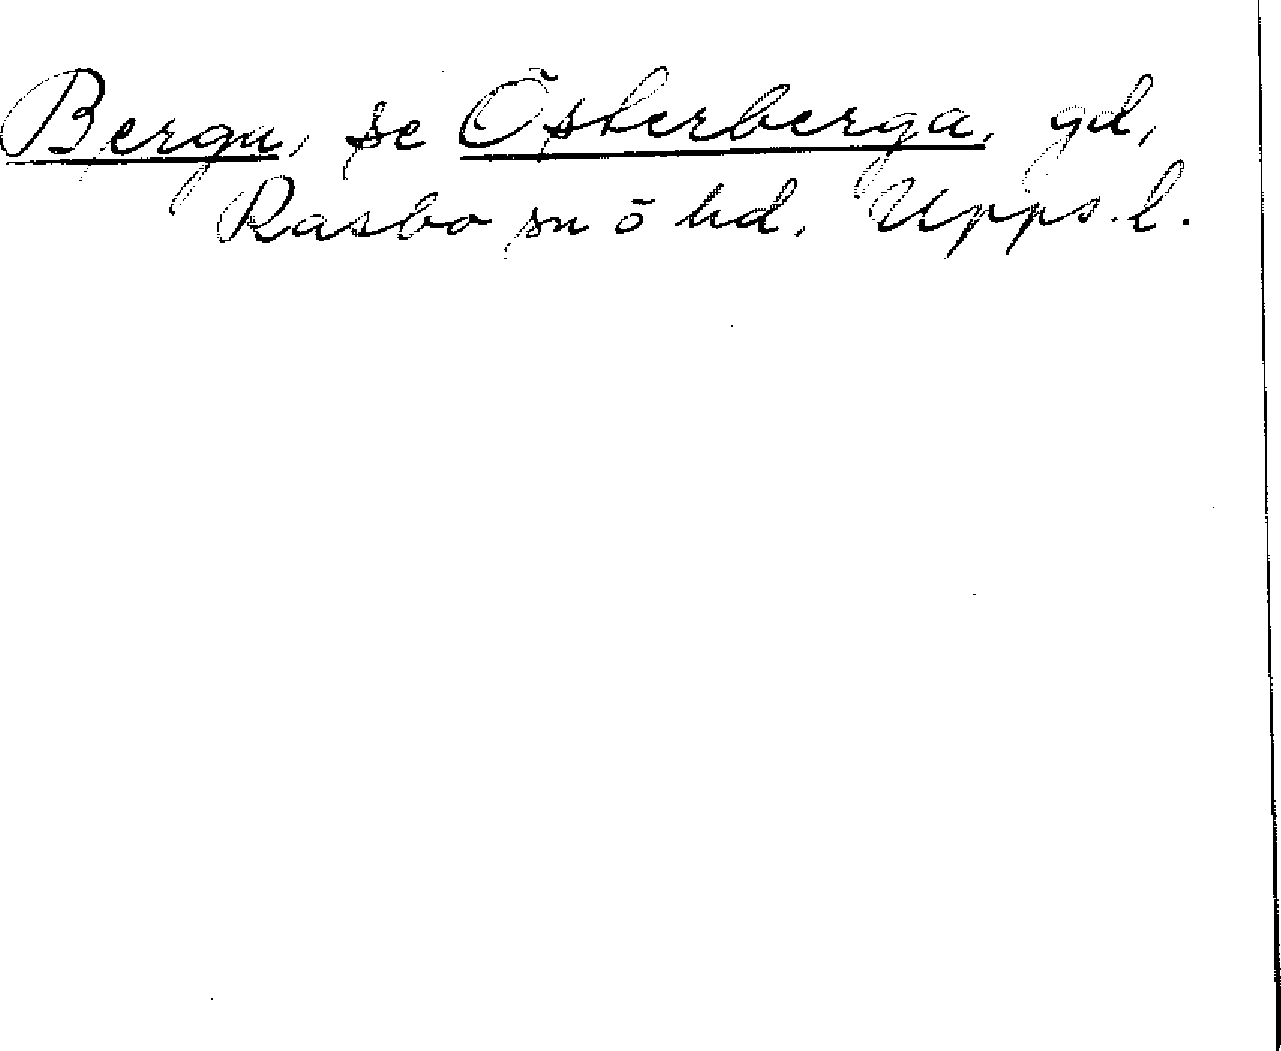 Berga, se Österberga, gd,
Rasbo sn o hd. Upps. l.